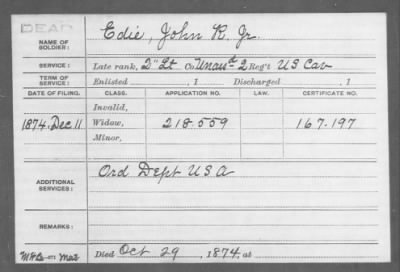 DEAD
NAME OF SOLDIER: Edie, John R. Jr.
SERVICE: Late rank, 2" Lt Co. Unass'd 2 Reg't US Cav
TERM OF SERVICE: Enlisted , 1 Discharged , 1
DATE OF FILING. CLASS. APPLICATION NO. LAW. CERTIFICATE NO.
Invalid,
1874, Dec 11 Widow, 218.559 167.197
Minor,
ADDITIONAL SERVICES: Ord Dept USA
REMARKS:
Died Oct 29, 1874, at